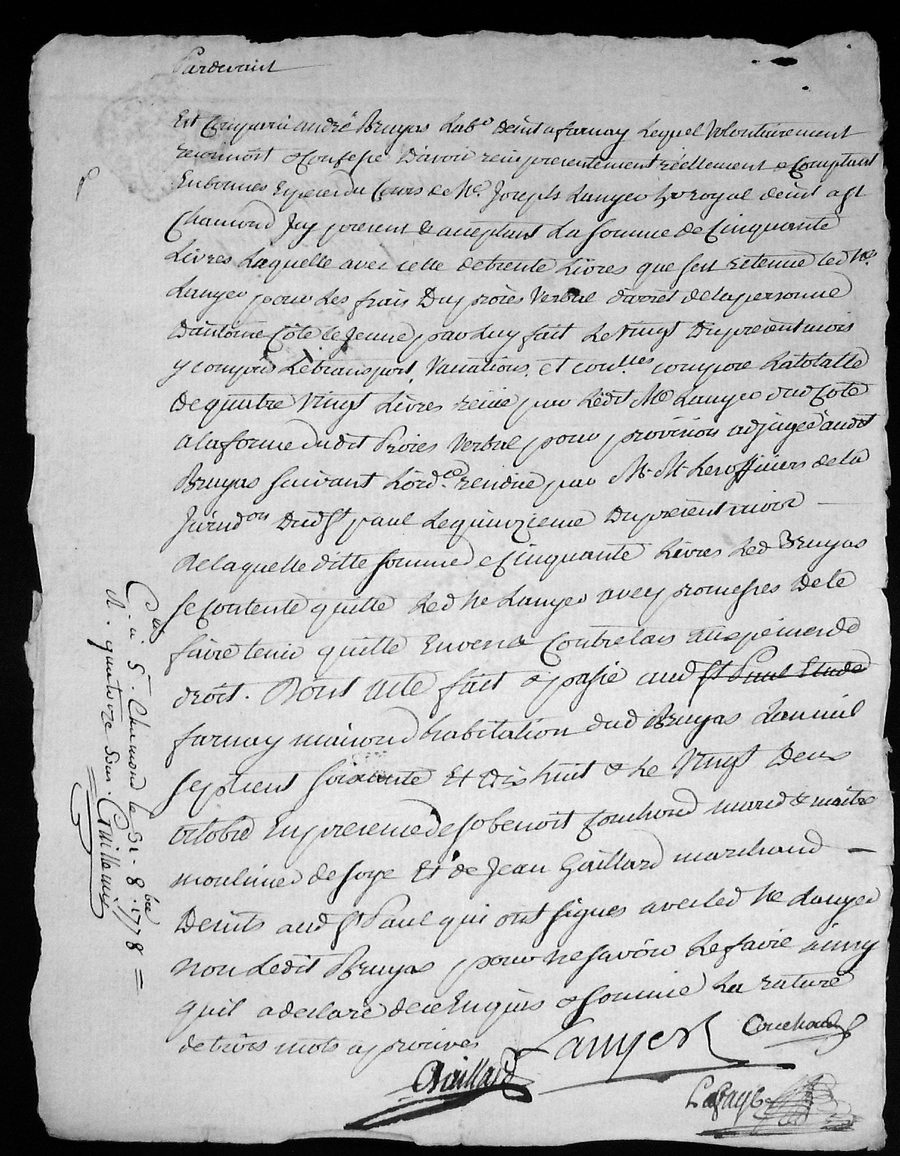 Pardevant
Est Comparu andré Bruyas Labr demt a farnay Lequel Volontairement
reconnoit & Confesse D'avoir reçu presentement réellement & Comptant
En bonnes Especes du Cours de Me. Joseph Lanyer hr royal demt a St
Chamond Icy present & acceptant La somme de Cinquante
Livres Laquelle avec cette de trente Livres que s'est retenue led Me.
Lanyer pour Les frais Du procès Verbal d'arret de la personne
D'antoine Côte le Jeune par Luy fait Le Vingt Du present mois
y compris Le transport, Vacations, et compose La totalle
De quatre Vingt Livres reçue par Ledit Me Lanyer dud Cote
a la forme dudit Proces Verbal pour provision adjugée audit
Bruyas suivant L'ordce rendue par M. M. Les officiers de la
Juridon Dud St paul Le quinzieme Du present mois
De laquelle ditte somme de Cinquante Livres Led Bruyas
se contente quitte Led Me Lanyer avec promesses de le
faire tenir quitte Envers & Contre tous aux peines de
droit. Dont acte fait & passé aud St Paul Etude
farnay maison d'habitation dud Bruyas L'an mil
sept cent soixante Et dix huit & Le Vingt Deux
octobre En presence de sr benoit Couchoud marcd & maitre
moulinier de soye Et de Jean Gaillard marchand
Demts aud St Paul qui ont signés avec led Me Lanyer
non Ledit Bruyas pour ne savoir Le faire ainsy
qu'il a declaré de ce Enquis & sommé La rature
de trois mots approuvés
Lanyer Couchoud
Gaillard
Lafay
C.lé a St. Chamond le 31. 8bre 1778
R. quatorze sous.